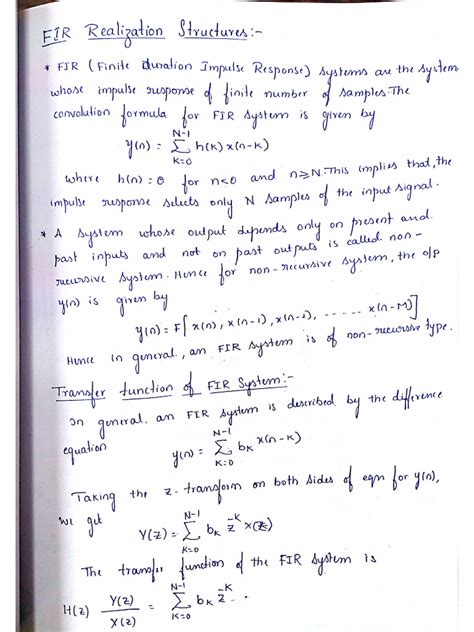 FIR Realization Structures:-
* FIR (Finite duration Impulse Response) systems are the system
whose impulse response of finite number of samples. The
convolution formula for FIR system is given by
y(n) = N-1 Σ K=0 h(k) x(n-k)
where h(n)=0 for n<0 and n≥N. This implies that, the
impulse response selects only N samples of the input signal.
* A system whose output depends only on present and
past inputs and not on past outputs is called non-
recursive system. Hence for non-recursive system, the o/p
y(n) is given by
y(n) = F[x(n), x(n-1), x(n-2), ----- x(n-M)]
Hence in general, an FIR system is of non-recursive type.
Transfer function of FIR System:-
In general. an FIR system is described by the difference
equation
y(n) = N-1 Σ K=0 bk x(n-k)
Taking the z-transform on both sides of eqn for y(n),
we get
Y(z) = N-1 Σ K=0 bk z^-K X(z)
The transfer function of the FIR system is
H(z) Y(z)/X(z) = N-1 Σ K=0 bk z^-K .